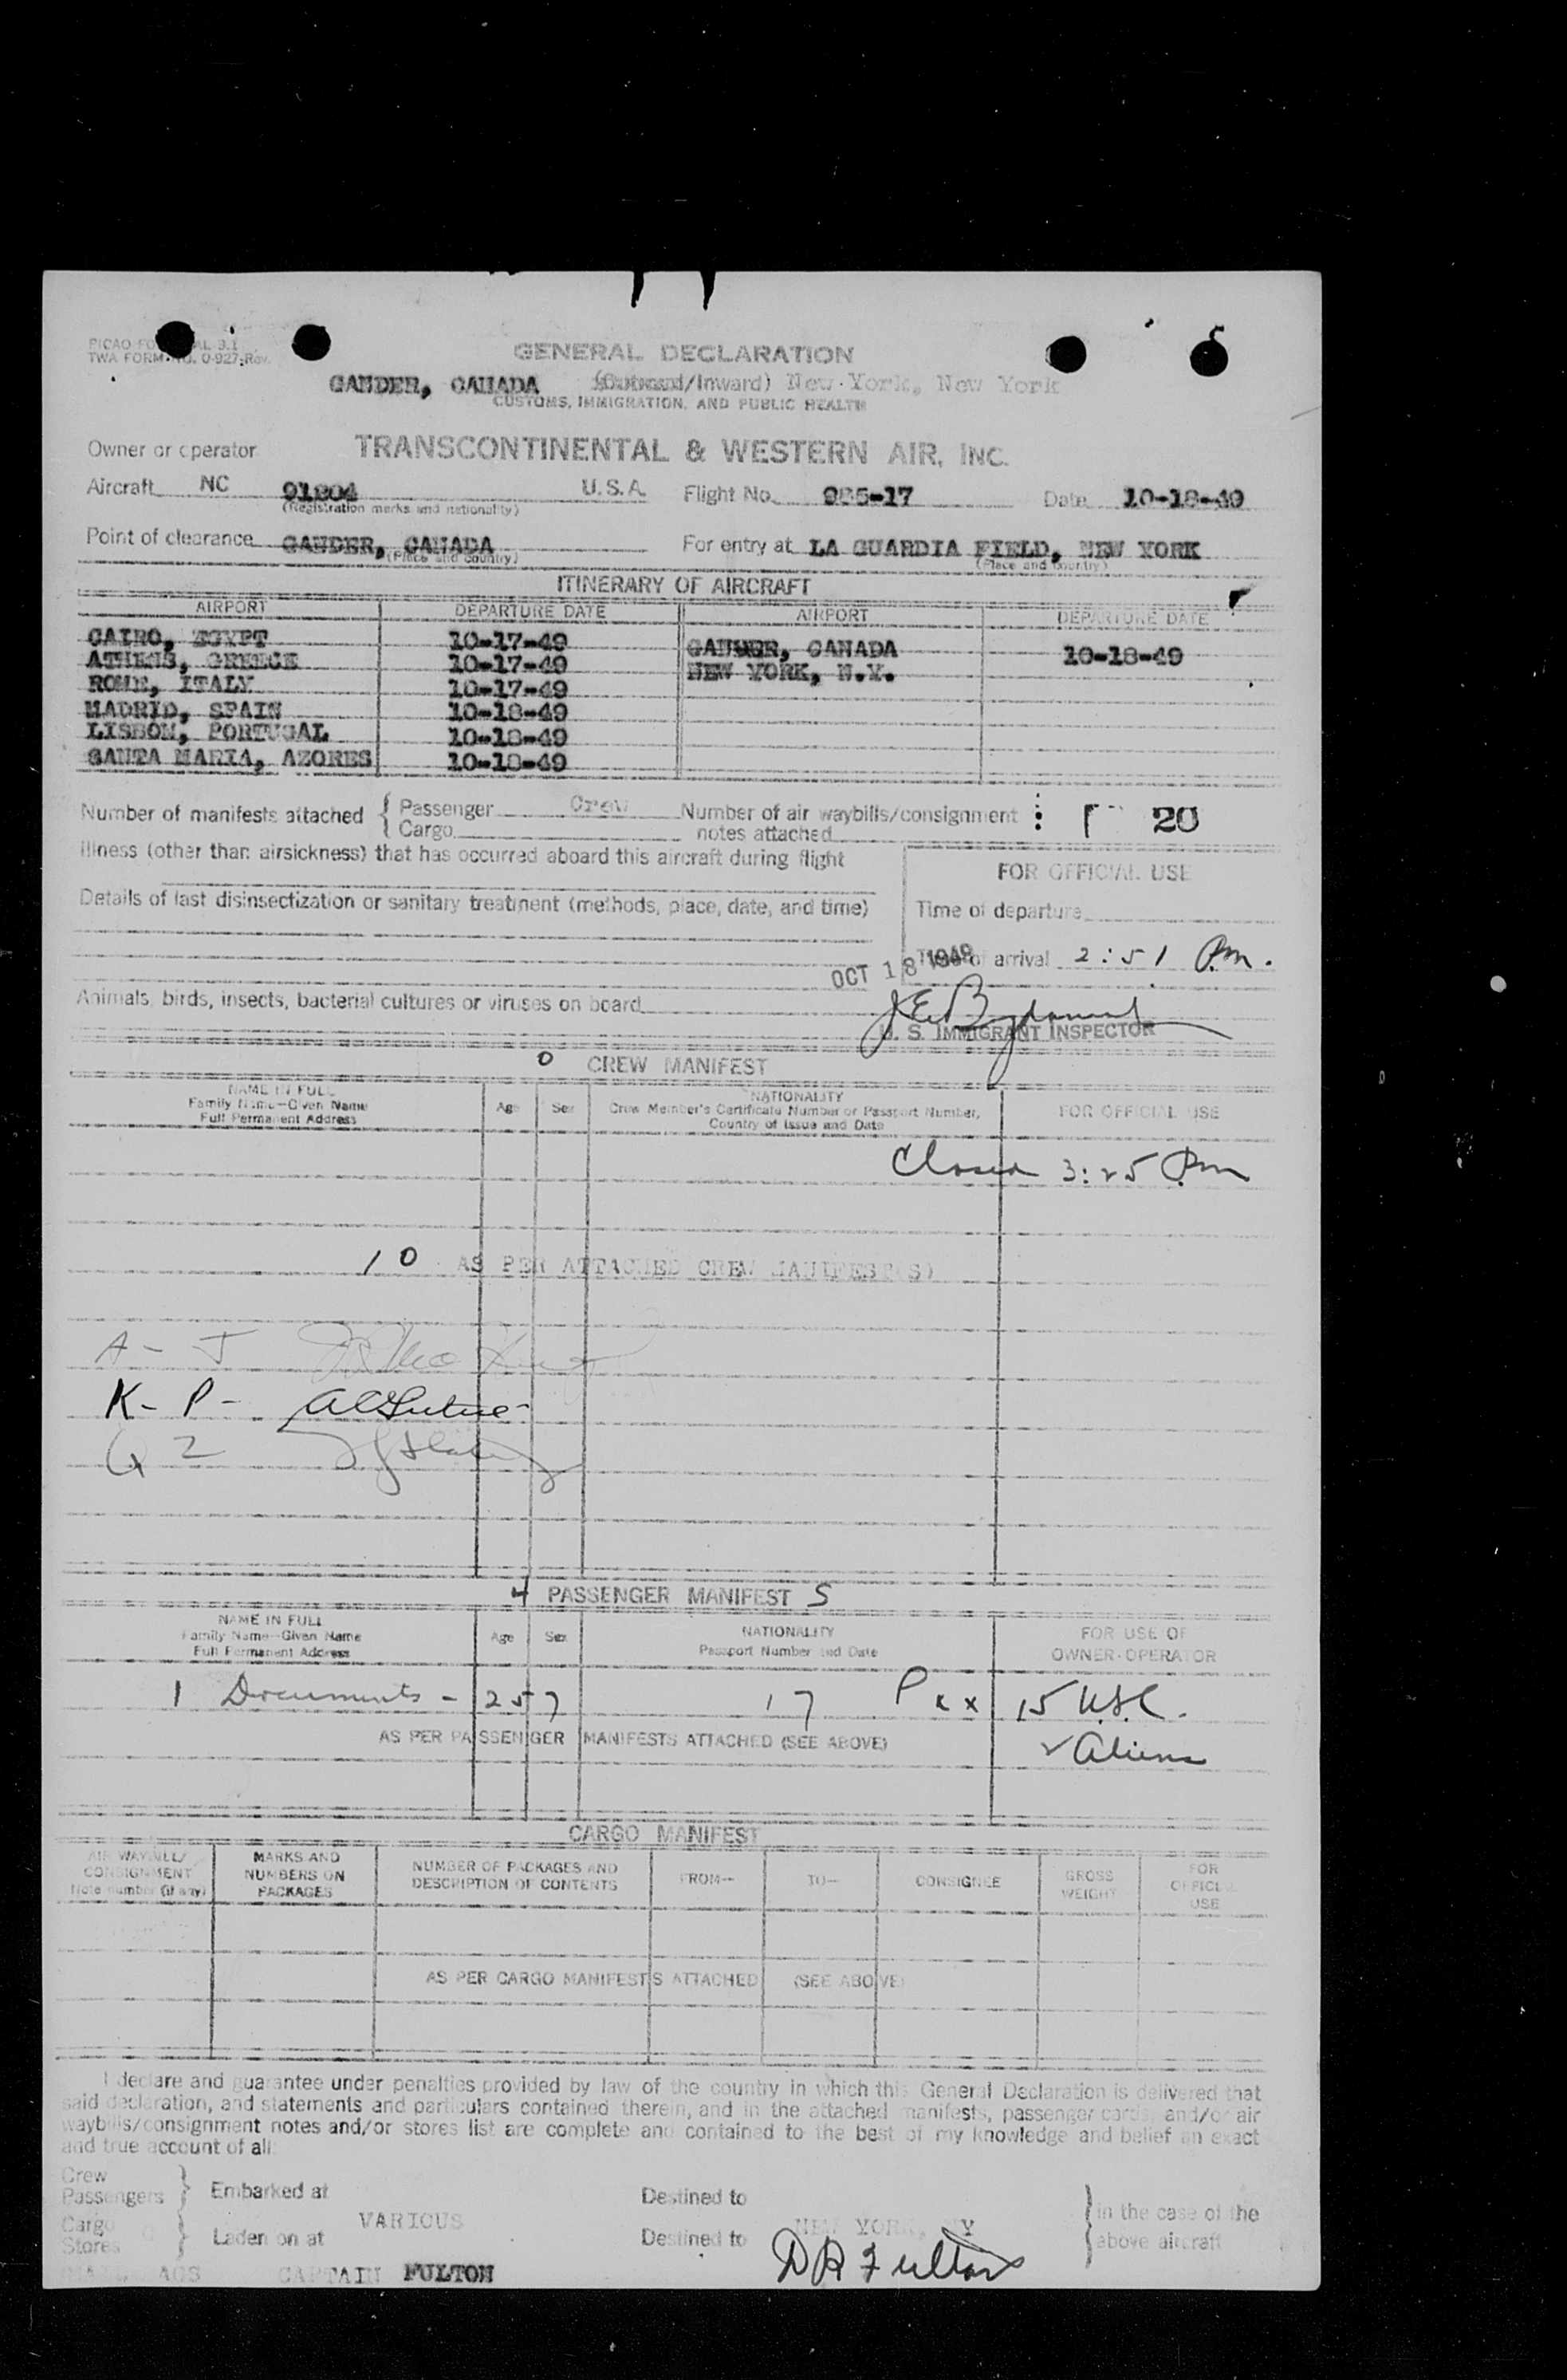 TWA FORM NO. 0-927-Rev.
GENERAL DECLARATION
GANDER, CANADA (Outward/Inward) New York, New York
CUSTOMS, IMMIGRATION, AND PUBLIC HEALTH
Owner or operator TRANSCONTINENTAL & WESTERN AIR, INC.
Aircraft NC 91204 U.S.A. Flight No. 985-17 Date 10-18-49
(Registration marks and nationality)
Point of clearance GANDER, CANADA For entry at LA GUARDIA FIELD, NEW YORK
(Place and country) (Place and country)
ITINERARY OF AIRCRAFT
AIRPORT DEPARTURE DATE AIRPORT DEPARTURE DATE
CAIRO, EGYPT 10-17-49 GANDER, CANADA 10-18-49
ATHENS, GREECE 10-17-49 NEW YORK, N.Y.
ROME, ITALY 10-17-49
MADRID, SPAIN 10-18-49
LISBON, PORTUGAL 10-18-49
SANTA MARIA, AZORES 10-18-49
Number of manifests attached { Passenger Crew Number of air waybills/consignment 20
Cargo notes attached
Illness (other than airsickness) that has occurred aboard this aircraft during flight
FOR OFFICIAL USE
Details of last disinsectization or sanitary treatment (methods, place, date, and time)
Time of departure
OCT 18 1949 Time of arrival 2:51 P.m.
Animals, birds, insects, bacterial cultures or viruses on board
U. S. IMMIGRANT INSPECTOR
0 CREW MANIFEST
NAME IN FULL
Family Name—Given Name
Full Permanent Address
Age Sex
NATIONALITY
Crew Member's Certificate Number or Passport Number,
Country of Issue and Date
FOR OFFICIAL USE
Closed 3:25 Pm
10 AS PER ATTACHED CREW MANIFEST(S)
A - J
K - P -
Q Z
4 PASSENGER MANIFEST 5
NAME IN FULL
Family Name—Given Name
Full Permanent Address
Age Sex
NATIONALITY
Passport Number and Date
FOR USE OF
OWNER-OPERATOR
1 Documents - 257 17 Pxx 15 U.S.C.
AS PER PASSENGER MANIFESTS ATTACHED (SEE ABOVE)
Aliens
CARGO MANIFEST
AIR WAYBILL/
CONSIGNMENT
Note number (if any)
MARKS AND
NUMBERS ON
PACKAGES
NUMBER OF PACKAGES AND
DESCRIPTION OF CONTENTS
FROM— TO— CONSIGNEE
GROSS
WEIGHT
FOR
OFFICIAL
USE
AS PER CARGO MANIFESTS ATTACHED (SEE ABOVE)
I declare and guarantee under penalties provided by law of the country in which this General Declaration is delivered that
said declaration, and statements and particulars contained therein, and in the attached manifests, passenger cards, and/or air
waybills/consignment notes and/or stores list are complete and contained to the best of my knowledge and belief an exact
and true account of all:
Crew
Passengers } Embarked at Destined to } in the case of the
Cargo
Stores } Laden on at VARIOUS Destined to NEW YORK, NY above aircraft
CAPTAIN FULTON DR Fulton